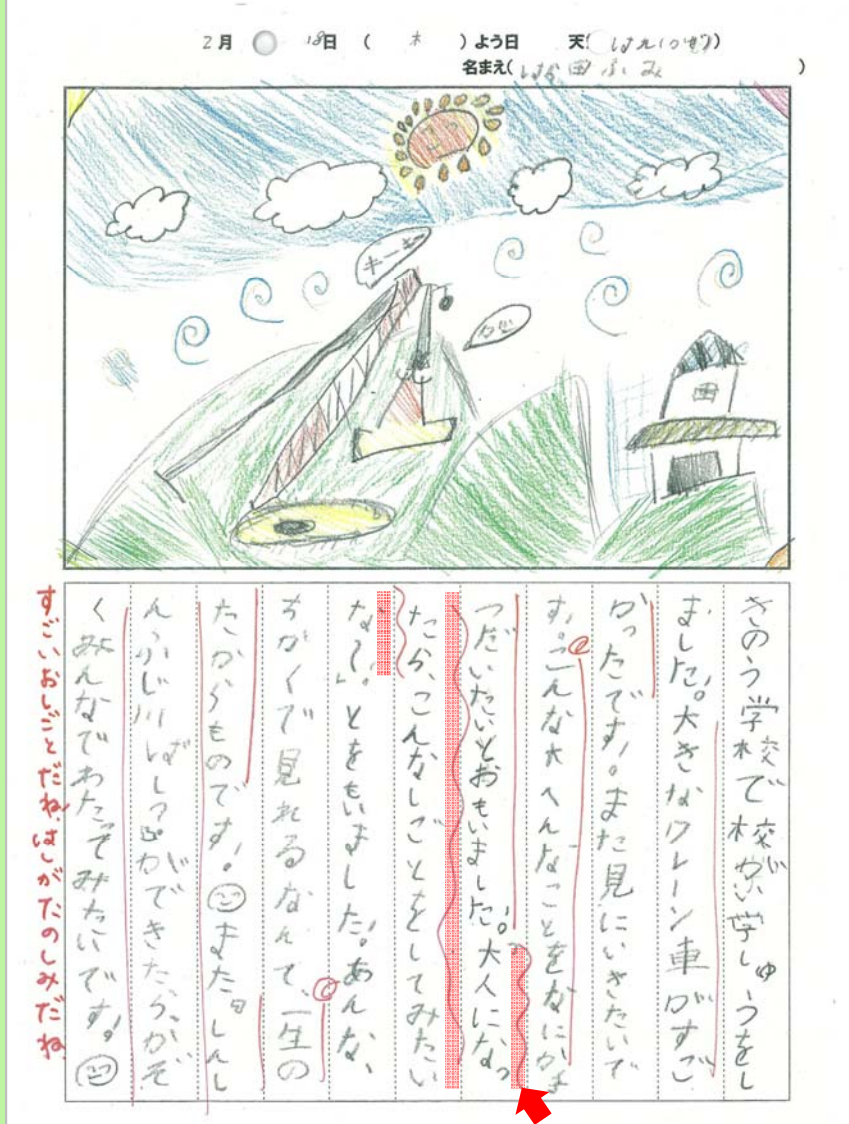 2月 18日 ( 木 ) よう日 天 はれ(かぜ)
名まえ( はな田ふみ )
キーキー
きのう学校で校がい学しゅうをし
ました。大きなクレーン車がすご
かったです!。また見にいきたいで
す。こんな大へんなことをなにかき
つだいたいとおもいました。大人になっ
たら、こんなしごとをしてみたい
な〜」。とをもいました。あんな、
ちがくで見れるなんて、一生の
たからものです!。また"しんし
んふじ川ばしができたら、かぞ
くみんなでわたってみたいです!
すごいおしごとだね。はしがたのしみだね。